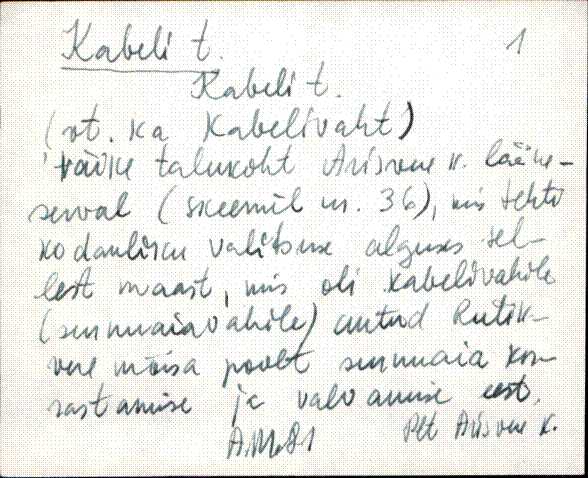 Kabeli t. 1
Kabeli t.
(vt. ka Kabelivaht)
väike talukoht Arisvere k. lääne-
serval (skeemil nr. 36), mis tehti
kodanlisku valitsuse alguses sel-
lest maast, mis oli kabelivahile
(surnuaiavahile) antud Rutik-
vere mõisa poolt surnuaia kor-
rastamise ja valvamise eest.
Plt Arisvere k.